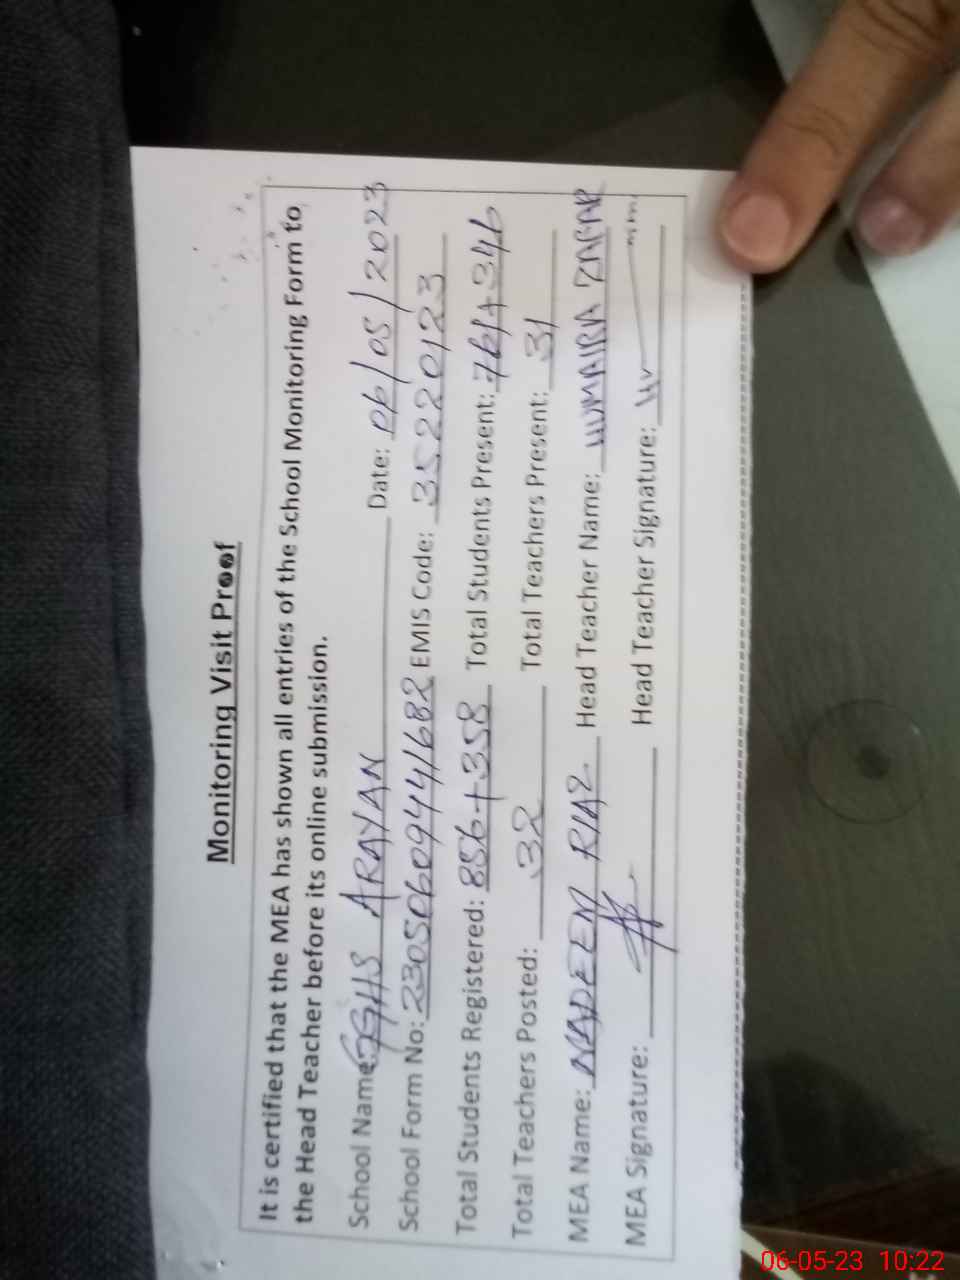 Monitoring Visit Proof
It is certified that the MEA has shown all entries of the School Monitoring Form to
the Head Teacher before its online submission.
School Name: GGHS ARAYAN Date: 06/05/2023
School Form No: 23050609441682 EMIS Code: 35220123
Total Students Registered: 856+358 Total Students Present: 761+346
Total Teachers Posted: 32 Total Teachers Present: 31
MEA Name: NADEEM RIAZ Head Teacher Name: HUMAIRA ZAFAR
MEA Signature: Head Teacher Signature:
06-05-23 10:22